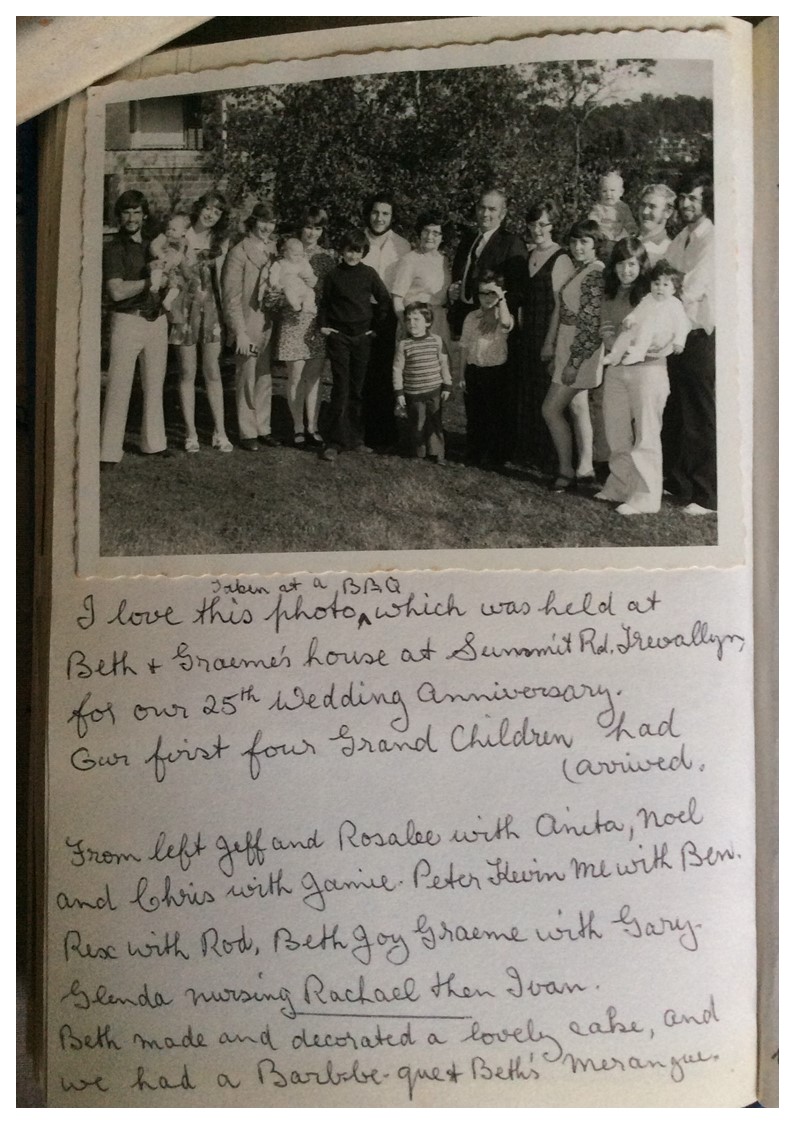 Taken at a BBQ
I love this photo ^ which was held at
Beth & Graeme's house at Summit Rd, Trevallyn,
for our 25th Wedding Anniversary.
Our first four Grand Children had
(arrived.
From left Jeff and Rosalee with Anita, Noel
and Chris with Jamie. Peter Kevin Me with Ben.
Rex with Rod, Beth Joy Graeme with Gary.
Glenda nursing Rachael then Ivan.
Beth made and decorated a lovely cake, and
we had a Barb-be-que & Beth's Merangue.